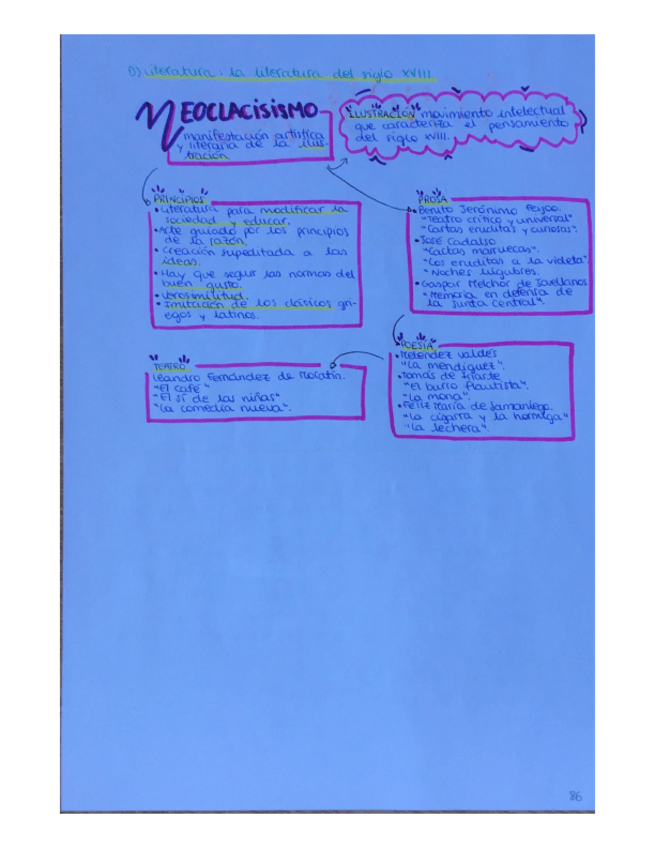 D) Literatura: la literatura del siglo XVIII.
NEOCLACISISMO
manifestación artística
y literaria de la ilus-
tración.
ILUSTRACIÓN movimiento intelectual
que caracteriza el pensamiento
del siglo XVIII.
PRINCIPIOS
•Literatura para modificar la
sociedad y educar.
•Arte guiado por los principios
de la razón.
•Creación supeditada a las
ideas.
•Hay que seguir las normas del
buen gusto.
•Verosimilitud.
•Imitación de los clásicos gri-
egos y latinos.
PROSA
•Benito Jerónimo Feijoo.
"Teatro crítico y universal"
"Cartas eruditas y curiosas".
•José Cadalso
"Cartas marruecas".
"Los eruditos a la violeta"
"Noches lúgubres.
•Gaspar Melchor de Jovellanos
"Memoria en defensa de
la Junta Central".
POESÍA
•Meléndez Valdés
"La mendiguez".
•Tomás de Iriarte
"El burro flautista".
"La mona".
•Félix María de Samaniego.
"La cigarra y la hormiga"
"La lechera".
TEATRO
Leandro Fernández de Moratín.
"El café"
"El sí de las niñas"
"La comedia nueva".
86